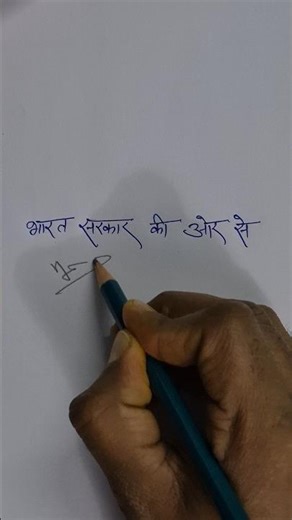 भारत सरकार की ओर से